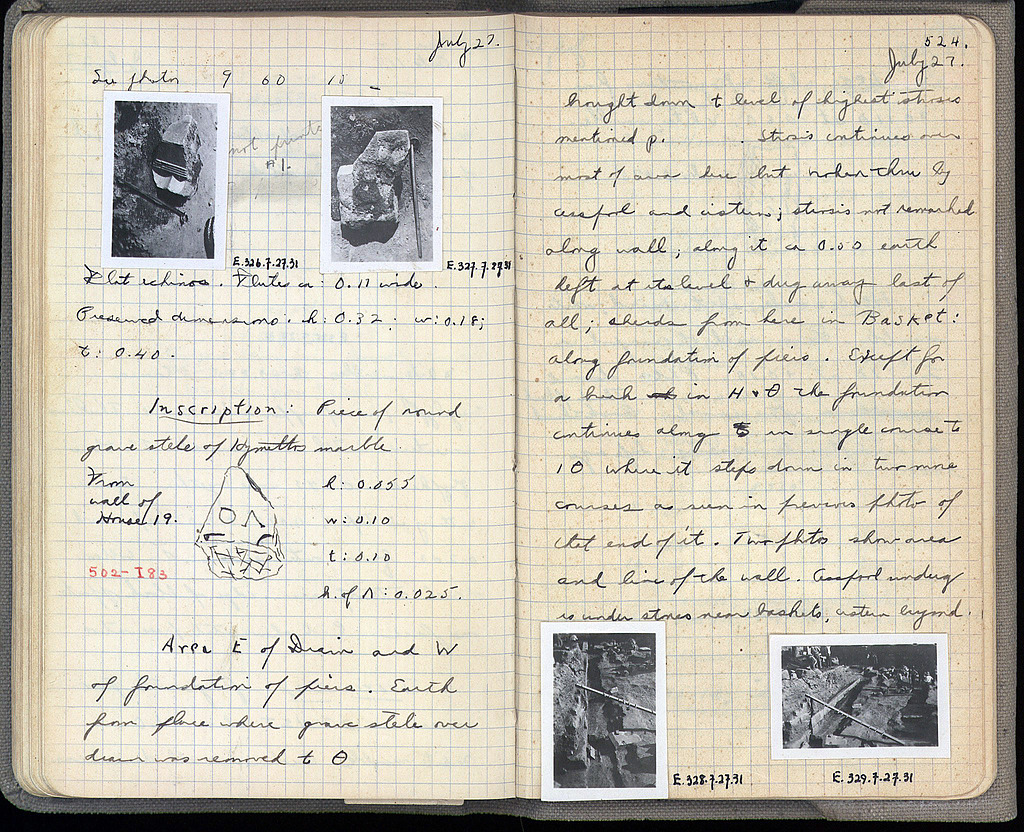 July 27.
See photos 9 60 10
not prints
A 1.
E.326.7.27.31
E.327.7.27.31
Flat echinos. Flutes ca: 0.11 wide.
Preserved dimensions: h: 0.32; w: 0.18;
t: 0.40.
Inscription: Piece of round
grave stele of Hymettos marble.
From
wall of
House 19.
502-I83
Ο Λ
h: 0.055
w: 0.10
t: 0.10
h. of Λ: 0.025.
Area E of Drain and W
of foundation of piers. Earth
from place where grave stele over
drain was removed to Θ
524.
July 27.
brought down to level of highest stroses
mentioned p. . Strosis continues over
most of area here but broken thru by
cesspool and cistern; strosis not remarked
along wall; along it ca 0.50 earth
left at its level & dug away last of
all; sherds from here in Basket:
along foundation of piers. Except for
a break in H & Θ the foundation
continues along in single course to
10 where it steps down in two more
courses as seen in previous photo of
that end of it. Two photos show area
and line of the wall. Cesspool undug
is under stones near baskets, cistern beyond.
E.328.7.27.31
E.329.7.27.31